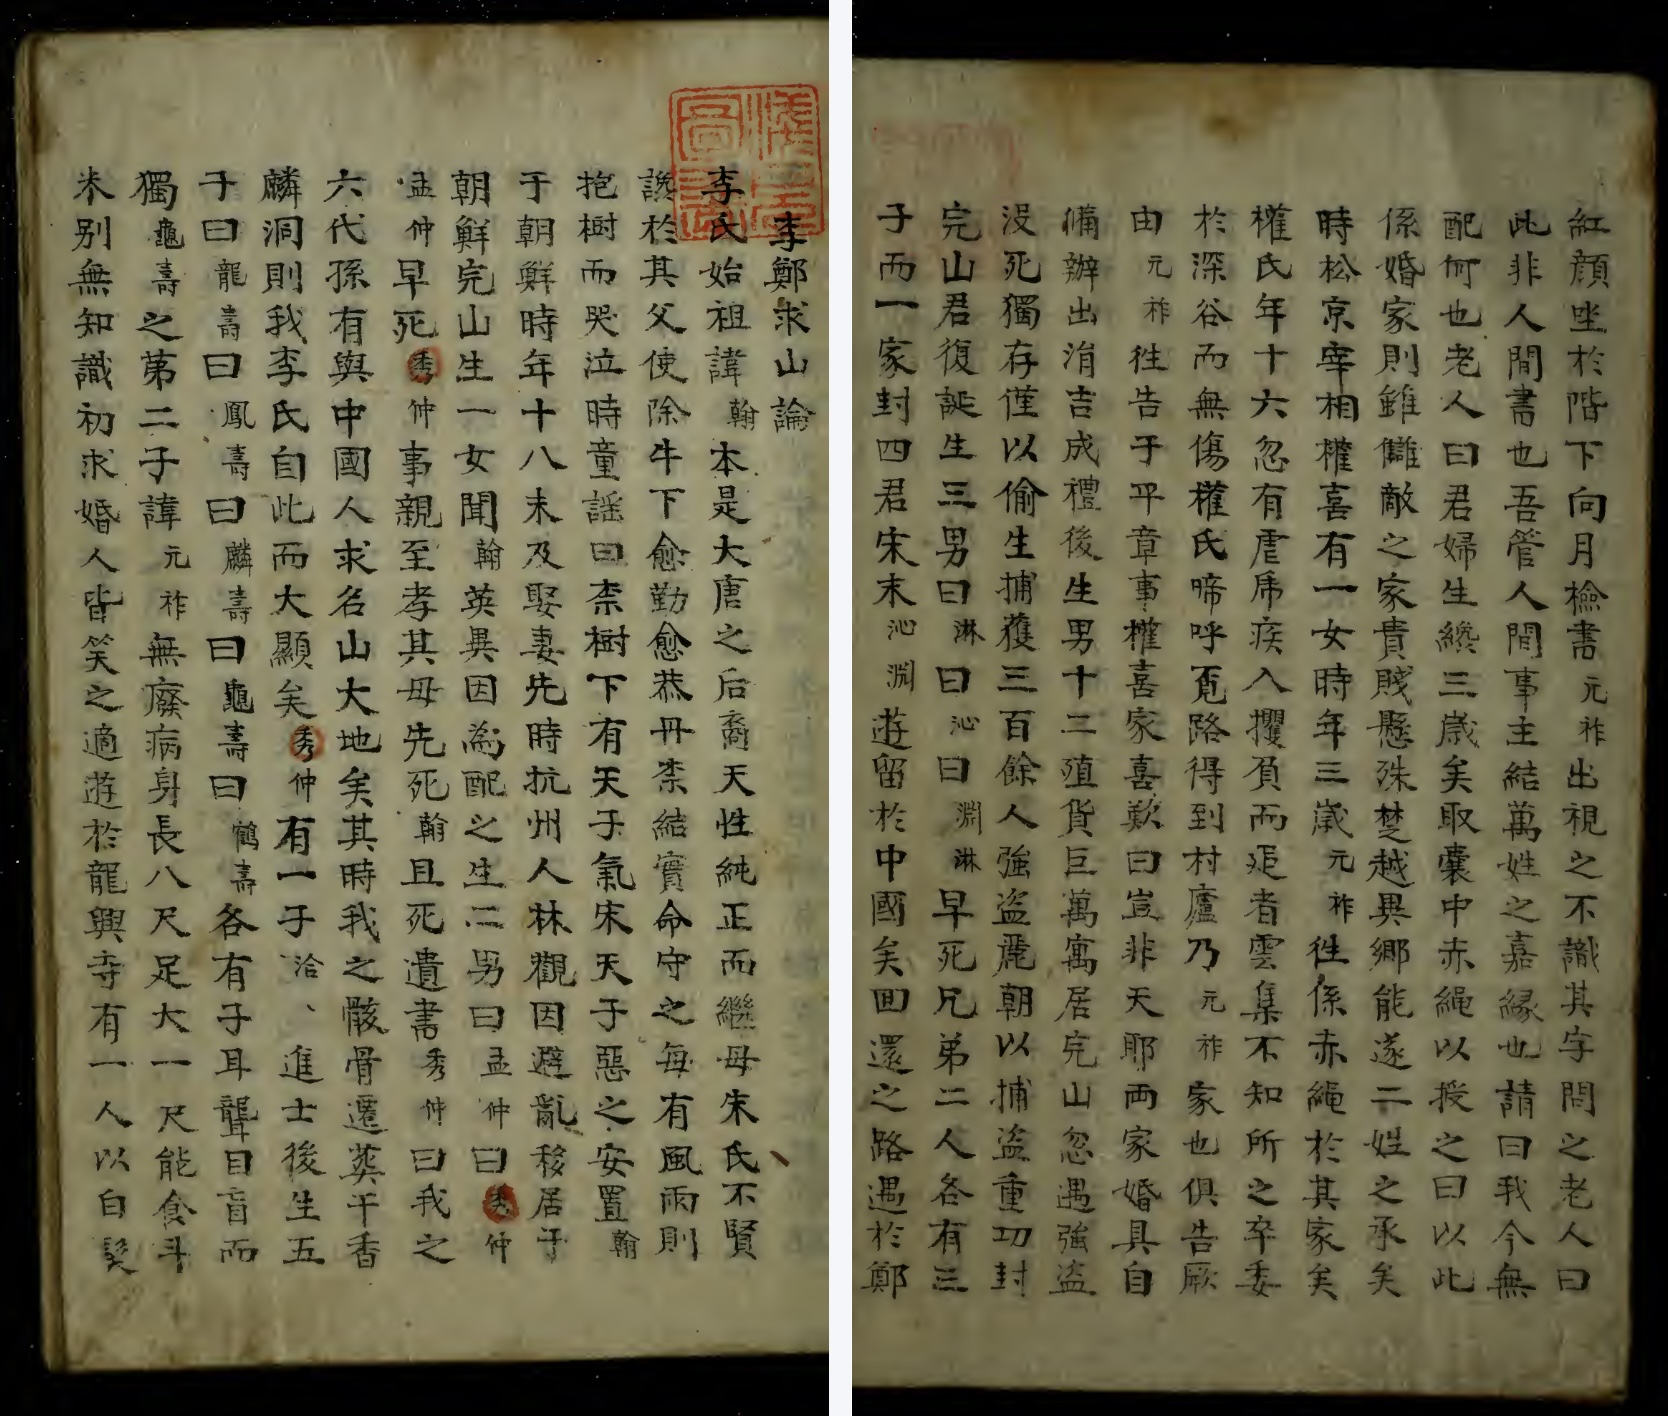 李鄭求山論
李氏始祖諱翰本是大唐之后裔天性純正而繼母朱氏不賢
讒於其父使除牛下愈勤愈恭丹柰結實命守之每有風雨則
抱樹而哭泣時童謡曰柰樹下有天子氣宋天子惡之安置翰
于朝鮮時年十八未及娶妻先時抗州人林觀因避亂移居于
朝鮮完山生一女聞翰英異因為配之生二男曰孟仲曰秀仲
孟仲早死秀仲事親至孝其母先死翰且死遺書秀仲曰我之
六代孫有與中國人求名山大地矣其時我之骸骨遷葬于香
麟洞則我李氏自此而大顯矣秀仲有一子洽、進士後生五
子曰龍壽曰鳳壽曰麟壽曰龜壽曰鶴壽各有子耳聾目盲而
獨龜壽之第二子諱元祚無癈病身長八尺足大一尺能食斗
米别無知識初求婚人皆笑之適遊於龍興寺有一人以白髮
紅顔坐於階下向月檢書元祚出視之不識其字問之老人曰
此非人間書也吾管人間事主結萬姓之嘉緣也請曰我今無
配何也老人曰君婦生纔三歲矣取囊中赤繩以授之曰以此
係婚家則雖讎敵之家貴賤懸殊楚越異鄉能遂二姓之承矣
時松京宰相權喜有一女時年三歲元祚往係赤繩於其家矣
權氏年十六忽有虐席疾入攫負而走者雲集不知所之卒委
於深谷而無傷權氏啼呼覓路得到村廬乃元祚家也俱告厥
由元祚徃告于平章事權喜家喜歎曰豈非天耶両家婚具自
備辦出涓吉成禮後生男十二殖貨巨萬寓居完山忽遇強盜
沒死獨存僅以偷生捕獲三百餘人強盜麗朝以捕盜重功封
完山君復誕生三男曰淋曰沁曰淵淋早死兄弟二人各有三
子而一家封四君宋末沁淵遊留於中國矣回還之路遇於鄭